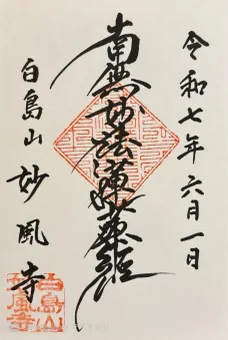 令和七年六月一日
南無妙法蓮華経
白島山妙風寺
白島山
妙風寺